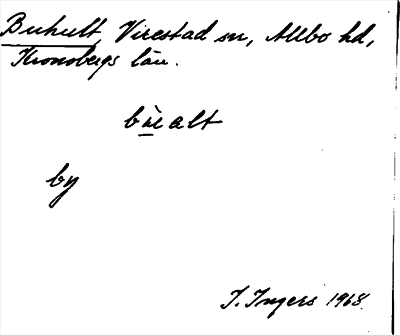 Buhult, Virestad sn, Allbo hd,
Kronobergs län.
by
I. Ingers 1968.